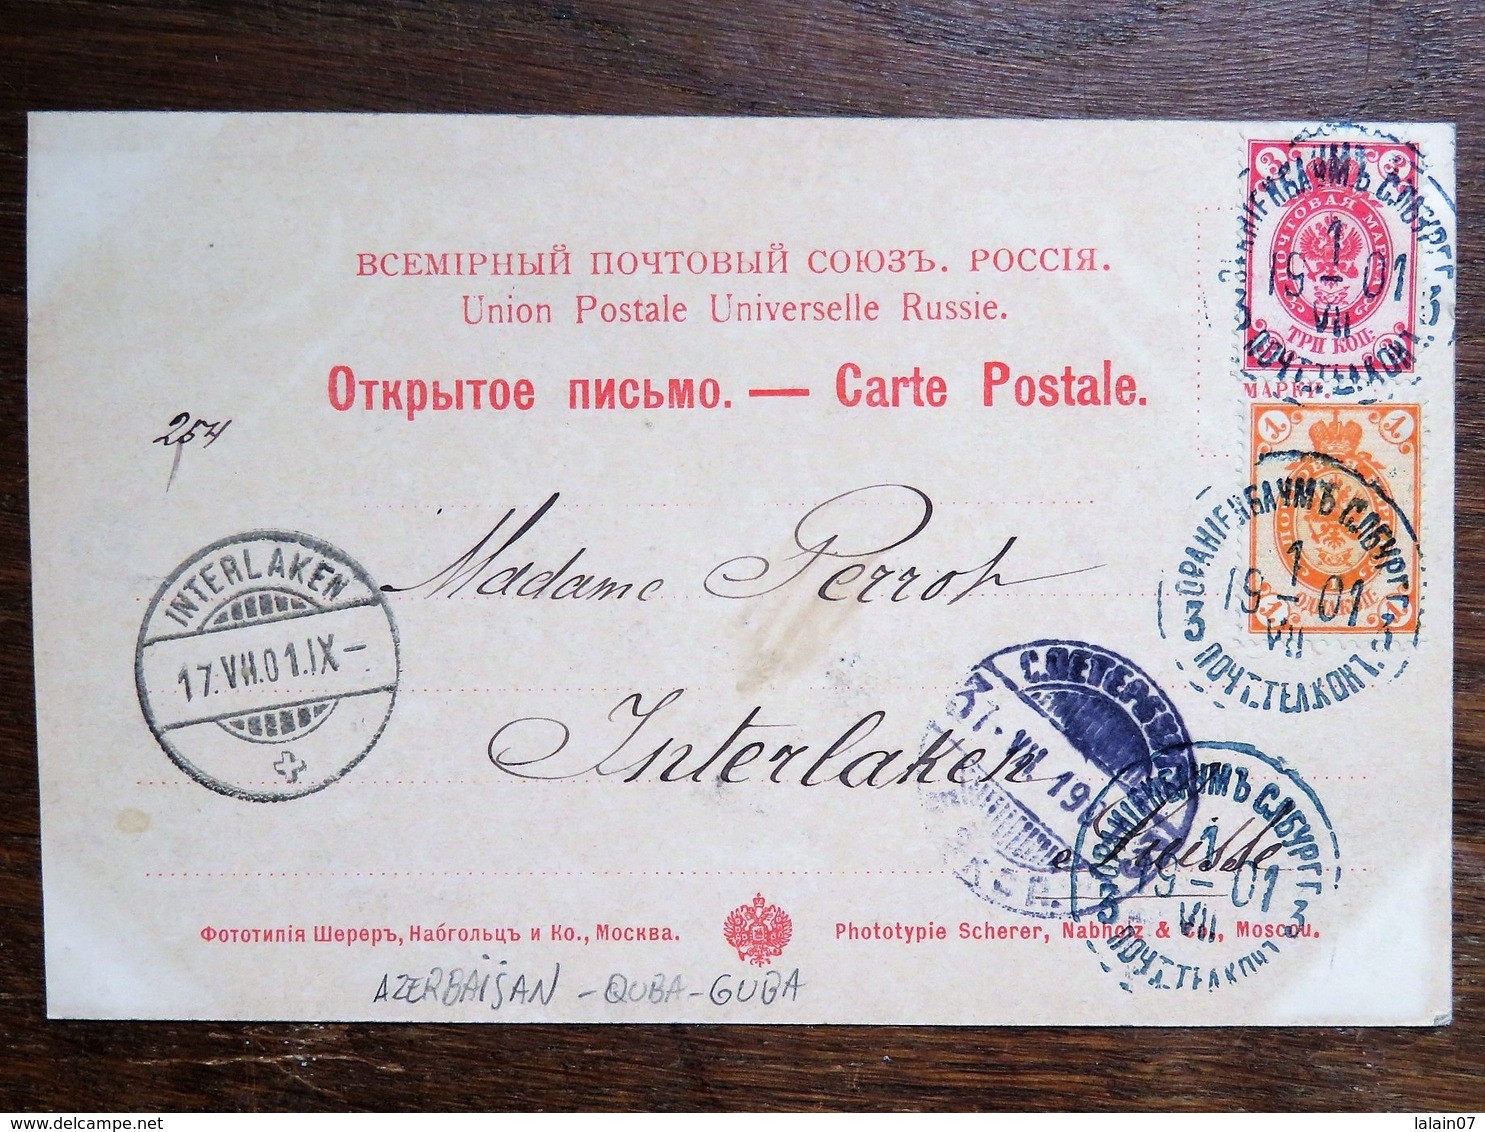 ВСЕМІРНЫЙ ПОЧТОВЫЙ СОЮЗЪ. РОССІЯ.
Union Postale Universelle Russie.
Открытое письмо. — Carte Postale.
3 3
ПОЧТОВАЯ МАРКА
ТРИ КОП:
МАРКИ.
1 1
1 1
ОРАНІЕНБАУМЪ С.ПБУРГ.Г.
1
19 – 01
VII
3 3
ПОЧТ.ТЕЛ.КОНТ.
254
INTERLAKEN
17.VII.01.IX–
Madame Perrot
Interlaken
Suisse
С.ПЕТЕРБУРГ
VII. 190
ОРАНІЕНБАУМЪ С.ПБУРГ.Г.
1
19 – 01
VII
3 3
ПОЧТ.ТЕЛ.КОНТ.
Фототипія Шереръ, Набгольцъ и Ко., Москва.
Phototypie Scherer, Nabholz & Co., Moscou.
AZERBAÏJAN - QUBA - GUBA
lalain07